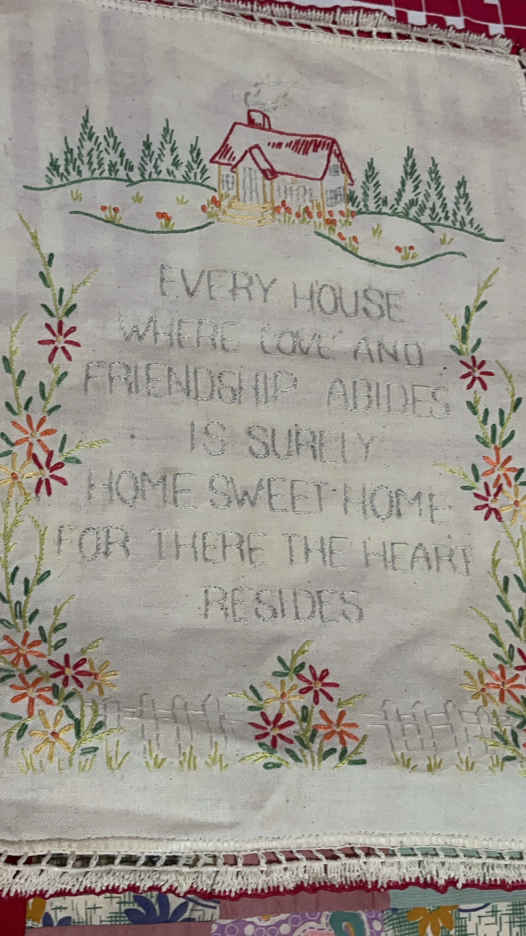 EVERY HOUSE
WHERE LOVE AND
FRIENDSHIP ABIDES
IS SURELY
HOME SWEET HOME
FOR THERE THE HEART
RESIDES